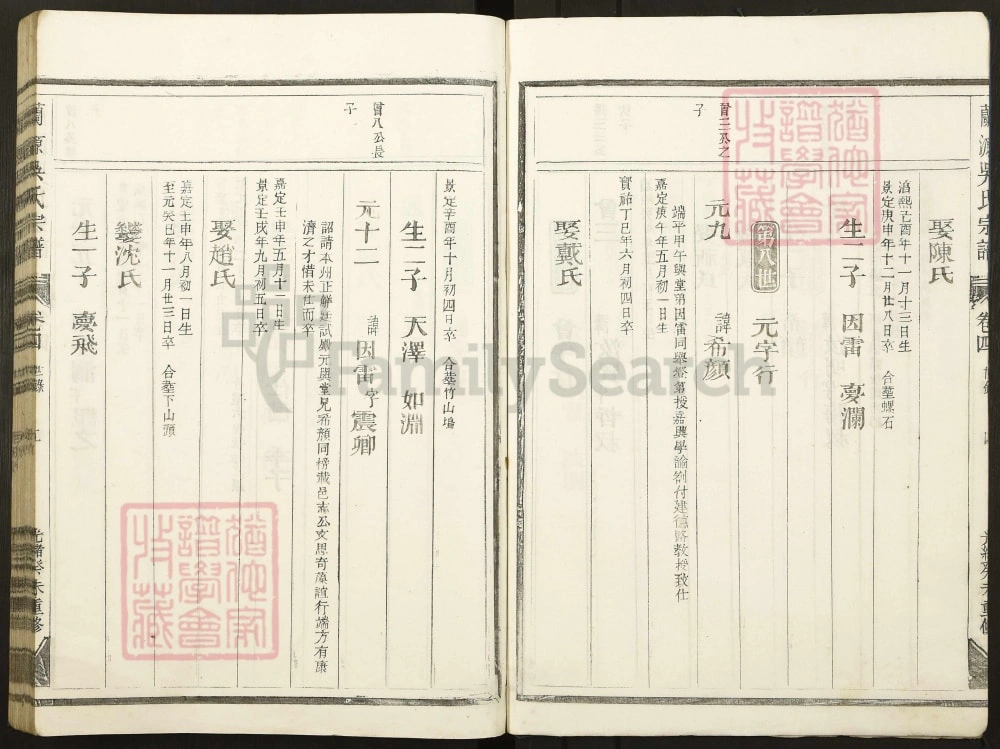 蘭源吳氏宗譜 卷四 世錄 四 光緒癸未重修
娶陳氏
淳熙己酉年十一月十三日生
景定庚申年十二月廿八日卒 合墓螺石
生二子 因雷 夢瀾
第八世 元字行
曾二公之子
元九 諱希顏
端平甲午與堂弟因雷同樂登第授嘉興學諭劄付建德路教授致仕
嘉定庚午年五月初一日生
寶祐丁巳年六月初四日卒
娶戴氏
景定辛酉年十月初四日卒 合墓竹山塢
生二子 天澤 如淵
曾八公長子
元十二 諱因雷字震卿
詔請本州正解廷試殿元與堂兄希顏同榜載邑志公文思奇藻誼行端方有康濟之才惜未仕而卒
嘉定壬申年五月十一日生
景定壬戌年九月初五日卒
娶趙氏
嘉定壬申年八月初一日生
至元癸巳年十一月廿三日卒 合墓下山頭
繼沈氏
生一子 夢飛
蘭源吳氏宗譜 卷四 世錄 五 光緒癸未重修
猶他家譜學會收藏
猶他家譜學會收藏
FamilySearch